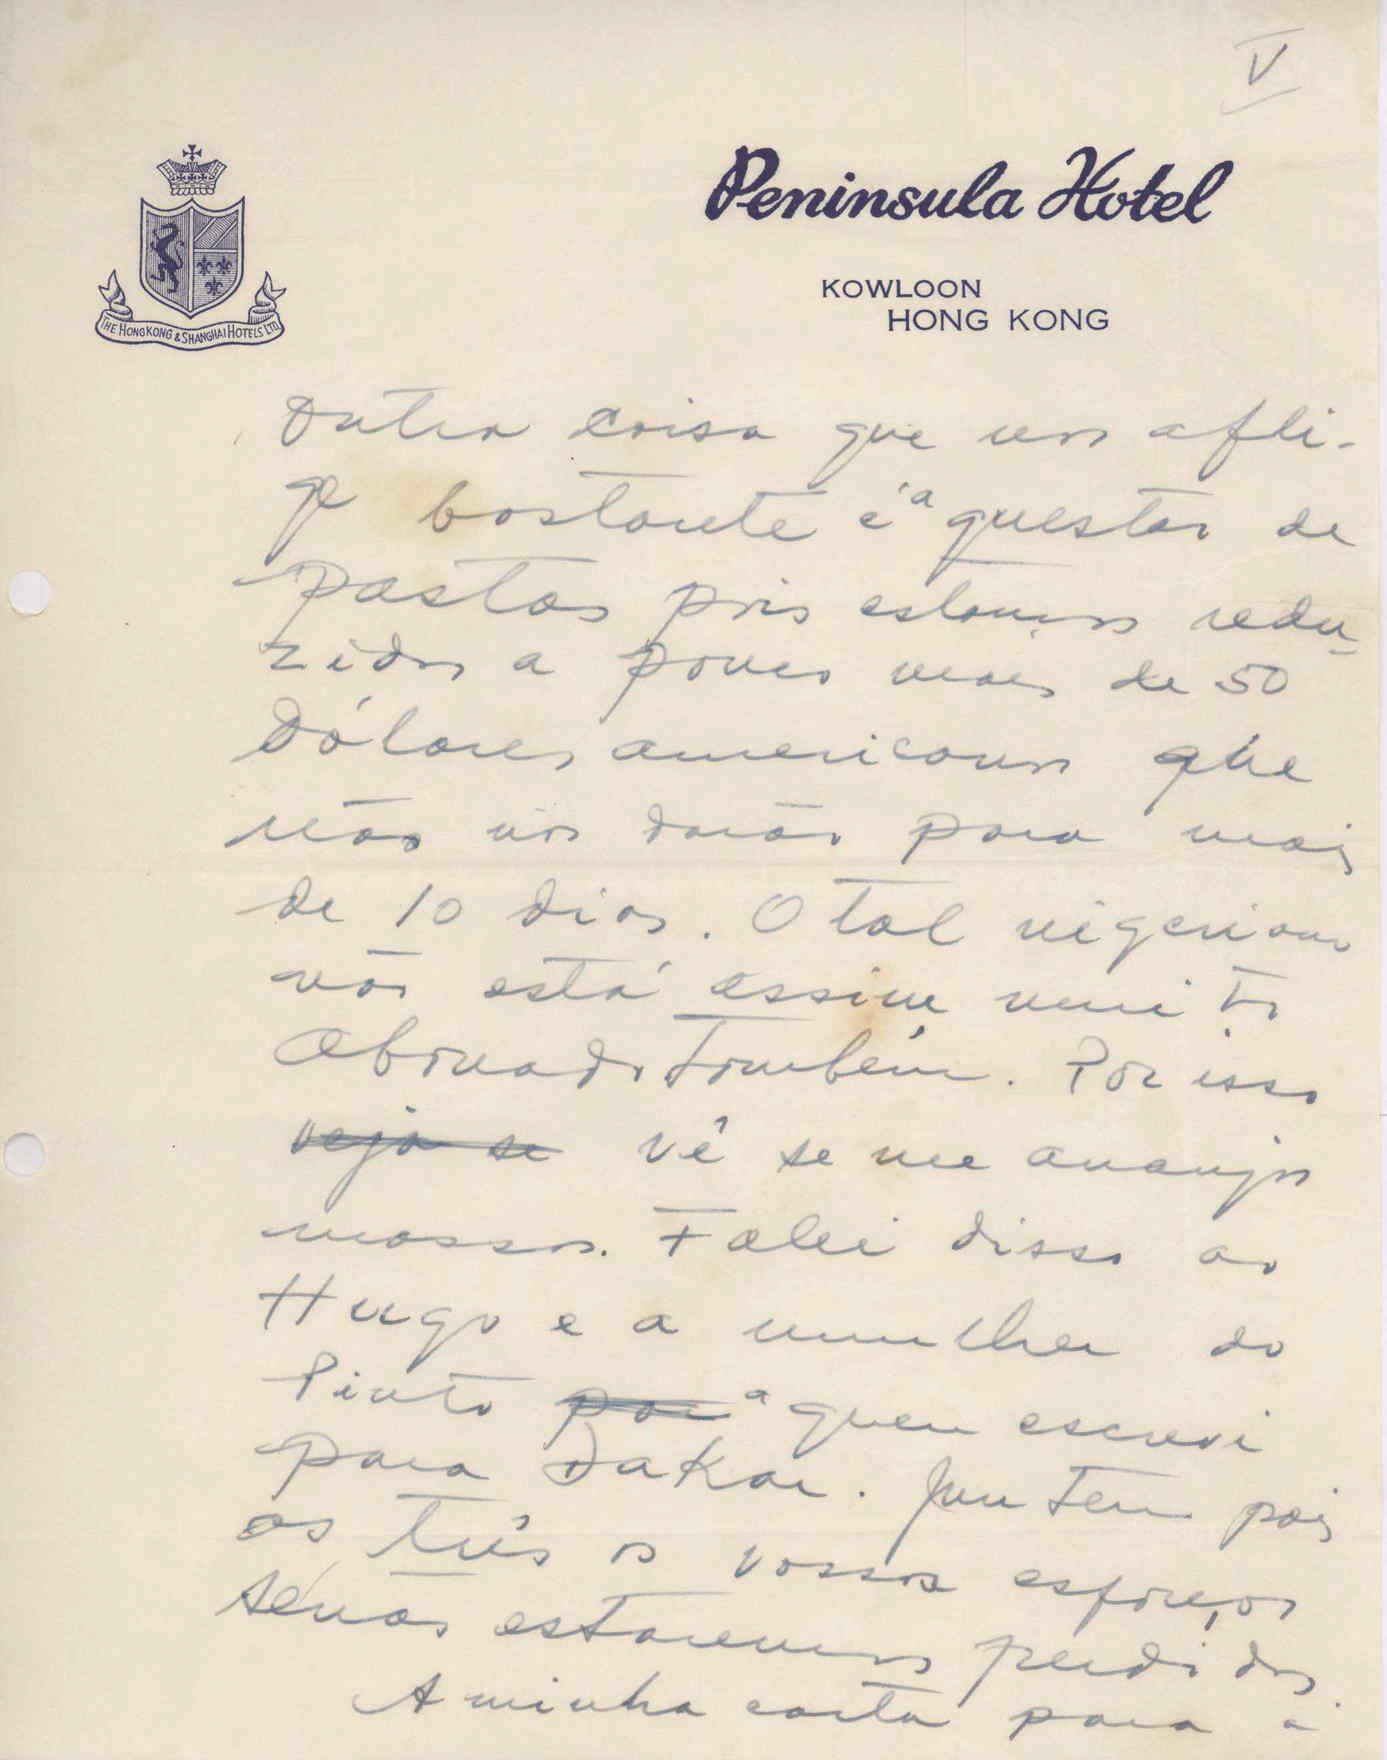 V
Peninsula Hotel
KOWLOON
HONG KONG
THE HONGKONG & SHANGHAI HOTELS LTD.
Outra coisa que nos afli-
ge bastante é a questão de
pastas pois estamos redu-
zidos a pouco mais de 50
Dólares americanos que
não nos darão para mais
de 10 dias. O tal nigeriano
não está assim muito
abonado também. Por isso
veja se vê se me arranjas
massas. Falei disso ao
Hugo e a mulher do
Pinto para a quem escrevi
para Dakar. Juntem pois
os três os vossos esforços
senão estaremos perdidos.
A minha carta para a